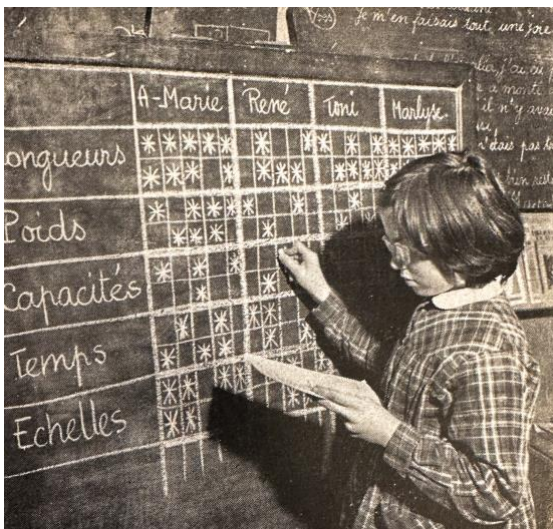 Je m'en faisais tout une joie
j'ai eu
a monté
il n'y avai
A-Marie René Toni Marlyse
ongueurs
Poids
Capacités
Temps
Echelles